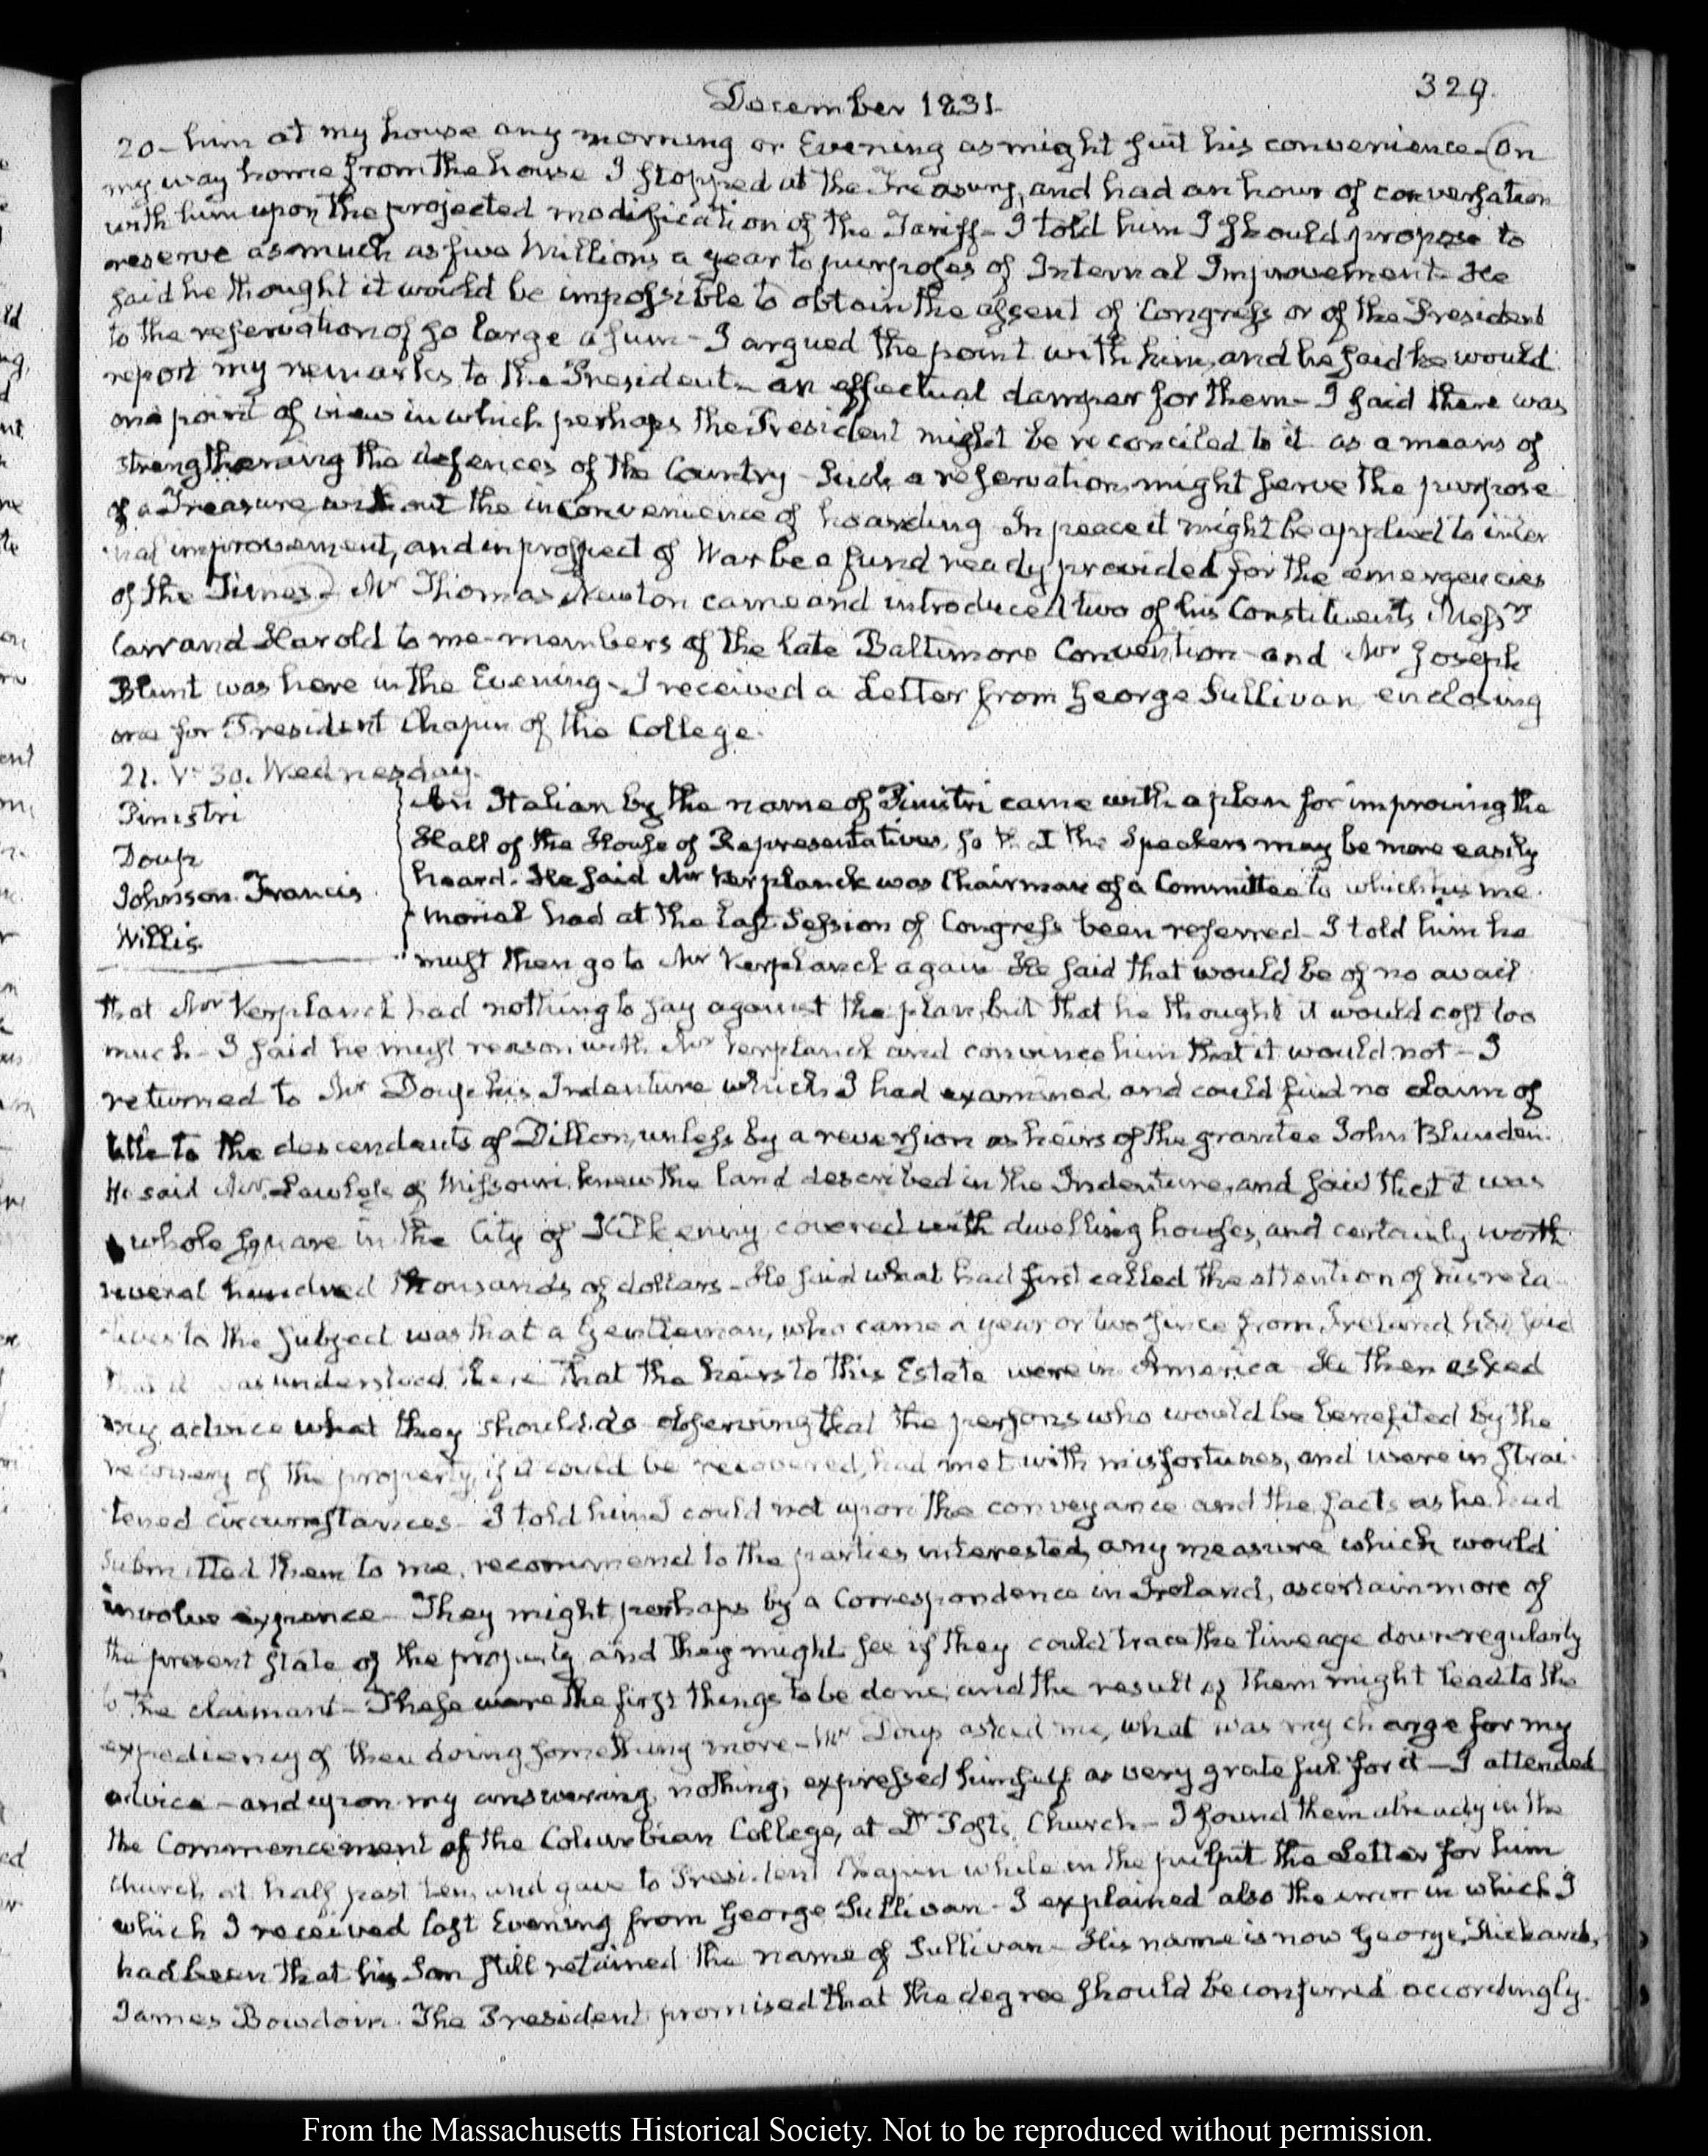 329.
December 1831.
20— him at my house any morning or Evening as might suit his convenience. On
my way home from the house I stopped at the Treasury, and had an hour of conversation
with him upon the projected modification of the Tariff— I told him I should propose to
reserve as much as five Millions a year to purposes of Internal Improvement— He
said he thought it would be impossible to obtain the assent of Congress or of the President
to the reservation of so large a sum— I argued the point with him, and he said he would
report my remarks to the President— an effectual damper for them— I said there was
one point of view in which perhaps the President might be reconciled to it as a means of
strengthening the defences of the Country— Such a reservation might serve the purpose
of a Treasure without the inconvenience of hoarding— In peace it might be applied to inter
nal improvement, and in prospect of War be a fund ready provided for the emergencies
of the Times— Mr Thomas Newton came and introduced two of his Constituents Messrs
Carr and Harold to me— members of the late Baltimore Convention— and Mr Joseph
Blunt was here in the Evening— I received a Letter from George Sullivan, enclosing
one for President Chapin of the College.
21. V. 30. Wednesday.
Pinistri
Doup
Johnson. Francis
Willis.
An Italian by the name of Pinistri came with a plan for improving the
Hall of the House of Representatives, so that the Speakers may be more easily
heard. He said Mr Verplanck was Chairman of a Committee to which his me
morial had at the last Session of Congress been referred— I told him he
must then go to Mr Verplanck again— He said that would be of no avail
that Mr Verplanck had nothing to say against the plan, but that he thought it would cost too
much— I said he must reason with Mr Verplanck and convince him that it would not— I
returned to Mr Doup his Indenture which I had examined, and could find no claim of
title to the descendants of Dillon, unless by a reversion as heirs of the grantee John Blunden.
He said Mr of Missouri, knew the land described in the Indenture, and said that it was
a whole square in the City of Kilkenny covered with dwelling houses, and certainly worth
several hundred thousands of dollars— He said what had first called the attention of his rela
tives to the subject was that a Gentleman, who came a year or two since from Ireland had said
that it was understood there that the heirs to this Estate were in America— He then asked
my advice what they should do— observing that the persons who would be benefited by the
recovery of the property, if it could be recovered, had met with misfortunes, and were in strai-
tened circumstances— I told him I could not upon the conveyance and the facts as he had
submitted them to me, recommend to the parties interested, any measure which would
involve expence— They might perhaps by a Correspondence in Ireland, ascertain more of
the present state of the property and they might see if they could trace the lineage down regularly
to the claimant— These were the first things to be done, and the result of them might lead to the
expediency of their doing something more— Mr Doup asked me, what was my charge for my
advice— and upon my answering, nothing; expressed himself as very grateful for it— I attended
the Commencement of the Columbian College, at Dr Post's Church— I found them already in the
Church at half past ten, and gave to President Chapin while in the pulpit the Letter for him
which I received last Evening from George Sullivan— I explained also the error in which I
had been that his Son still retained the name of Sullivan— His name is now George, Richard,
James Bowdoin. The President promised that the degree should be conferred accordingly.
From the Massachusetts Historical Society. Not to be reproduced without permission.